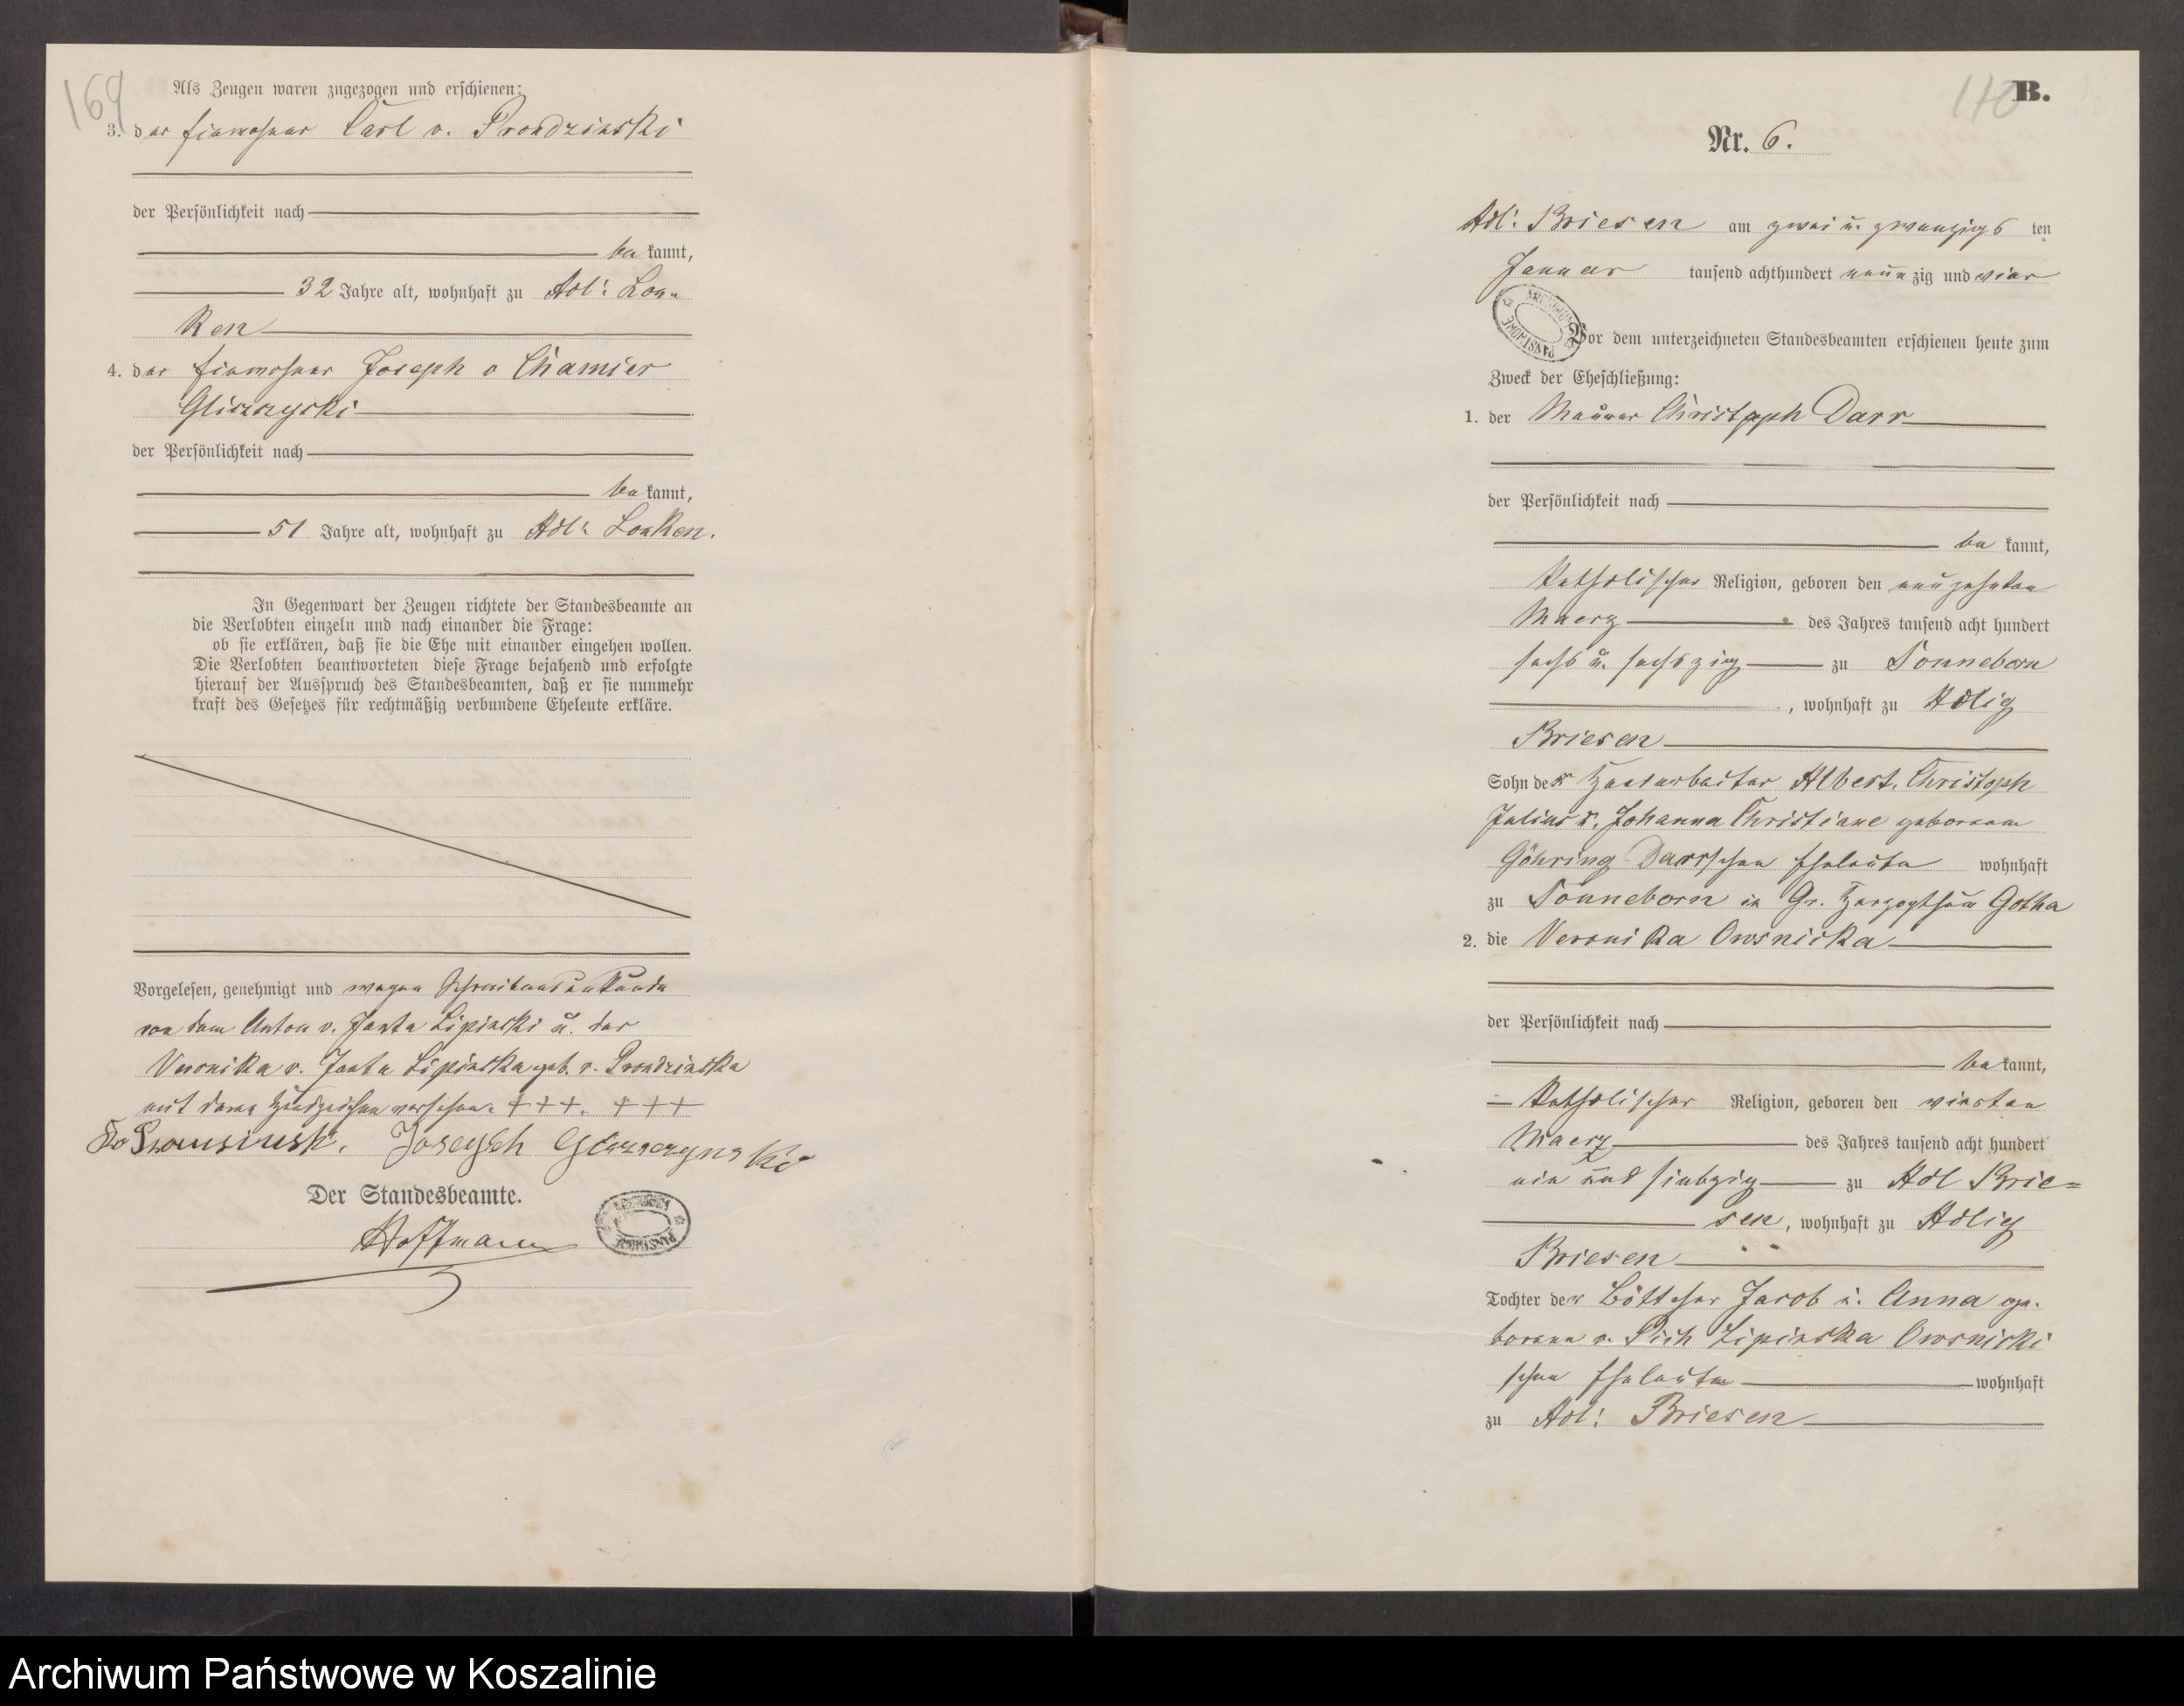 169
Als Zeugen waren zugezogen und erschienen:
3. der Einwohner Carl v. Prondzinski
der Persönlichkeit nach
bekannt,
32 Jahre alt, wohnhaft zu Adl: Loa-
ken
4. der Einwohner Joseph v Chamier
Gliszczyski
der Persönlichkeit nach
bekannt,
51 Jahre alt, wohnhaft zu Adl: Loaken.
In Gegenwart der Zeugen richtete der Standesbeamte an
die Verlobten einzeln und nach einander die Frage:
ob sie erklären, daß sie die Ehe mit einander eingehen wollen.
Die Verlobten beantworteten diese Frage bejahend und erfolgte
hierauf der Ausspruch des Standesbeamten, daß er sie nunmehr
kraft des Gesetzes für rechtmäßig verbundene Eheleute erkläre.
Vorgelesen, genehmigt und wegen Schreibensunkunde
von dem Anton v. Janta Lipinski u. der
Veronika v. Janta Lipinska geb. v. Prondzinska
mit deren Handzeichen versehen. +++. +++
Joseph
Der Standesbeamte.
Hoffmann
ARCHIWUM PAŃSTWOWE
110 B.
Nr. 6.
Adl: Briesen am zwei u. zwanzigs ten
Januar tausend achthundert neunzig und vier
ARCHIWUM PAŃSTWOWE
Vor dem unterzeichneten Standesbeamten erschienen heute zum
Zweck der Eheschließung:
1. der Maurer Christoph Darr
der Persönlichkeit nach
bekannt,
katholischer Religion, geboren den neunzehnten
Maerz des Jahres tausend acht hundert
sechs u. sechszig zu Sonneborn
, wohnhaft zu Adlig
Briesen
Sohn der Handarbeiter Albert, Christoph
Julius u. Johanna Christiane geborenen
Göhring Darrschen Eheleute wohnhaft
zu Sonneborn in Gr. Herzogthum Gotha
2. die Veronika Owsnicka
der Persönlichkeit nach
bekannt,
katholischer Religion, geboren den vierten
Maerz des Jahres tausend acht hundert
ein und siebzig zu Adl Brie=
sen, wohnhaft zu Adlig
Briesen
Tochter der Böttcher Jacob u. Anna ge-
borenen v. Pich Lipinska Owsnicki
schen Eheleute wohnhaft
zu Adl: Briesen
Archiwum Państwowe w Koszalinie